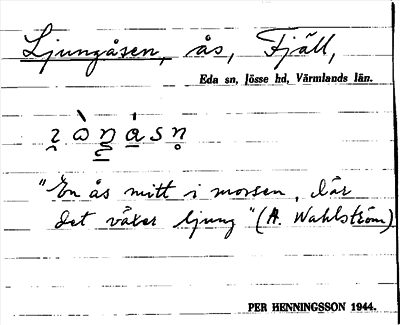 Ljungåsen, ås, Fjäll,
Eda sn, Jösse hd, Värmlands län.
"En ås mitt i mossen, där
det växer ljung" (A. Wahlström)
PER HENNINGSSON 1944.